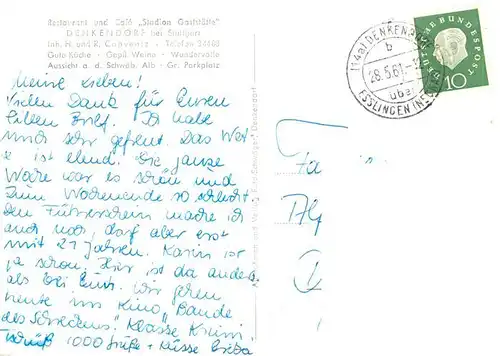 Restaurant und Café „Stadion Gaststätte"
DENKENDORF bei Stuttgart
Inh. H. und R. - Telefon 34408
Gute Küche - Gepfl. Weine - Wundervolle
Aussicht a. d. Schwäb. Alb - Gr. Parkplatz
Meine Lieben!
Vielen Dank für Euren
lieben Brief. Ich habe
mich sehr gefreut. Das Wet-
ter ist elend. Die ganze
Woche war es schön und
zum Wochenende so schlecht
Den Führerschein mache ich
auch noch, darf aber erst
mit 21 Jahren. Karin ist
ja schon. Hier ist da anders
als bei Euch. Wir gehen
heute ins Kino „Bande
des Schreckens" Klasse Krimi
Tschüß 1000 Grüße + Küsse
(14a) DENKENDORF
b
28.5.61
über
ESSLINGEN (NECKAR)
DEUTSCHE BUNDESPOST
10